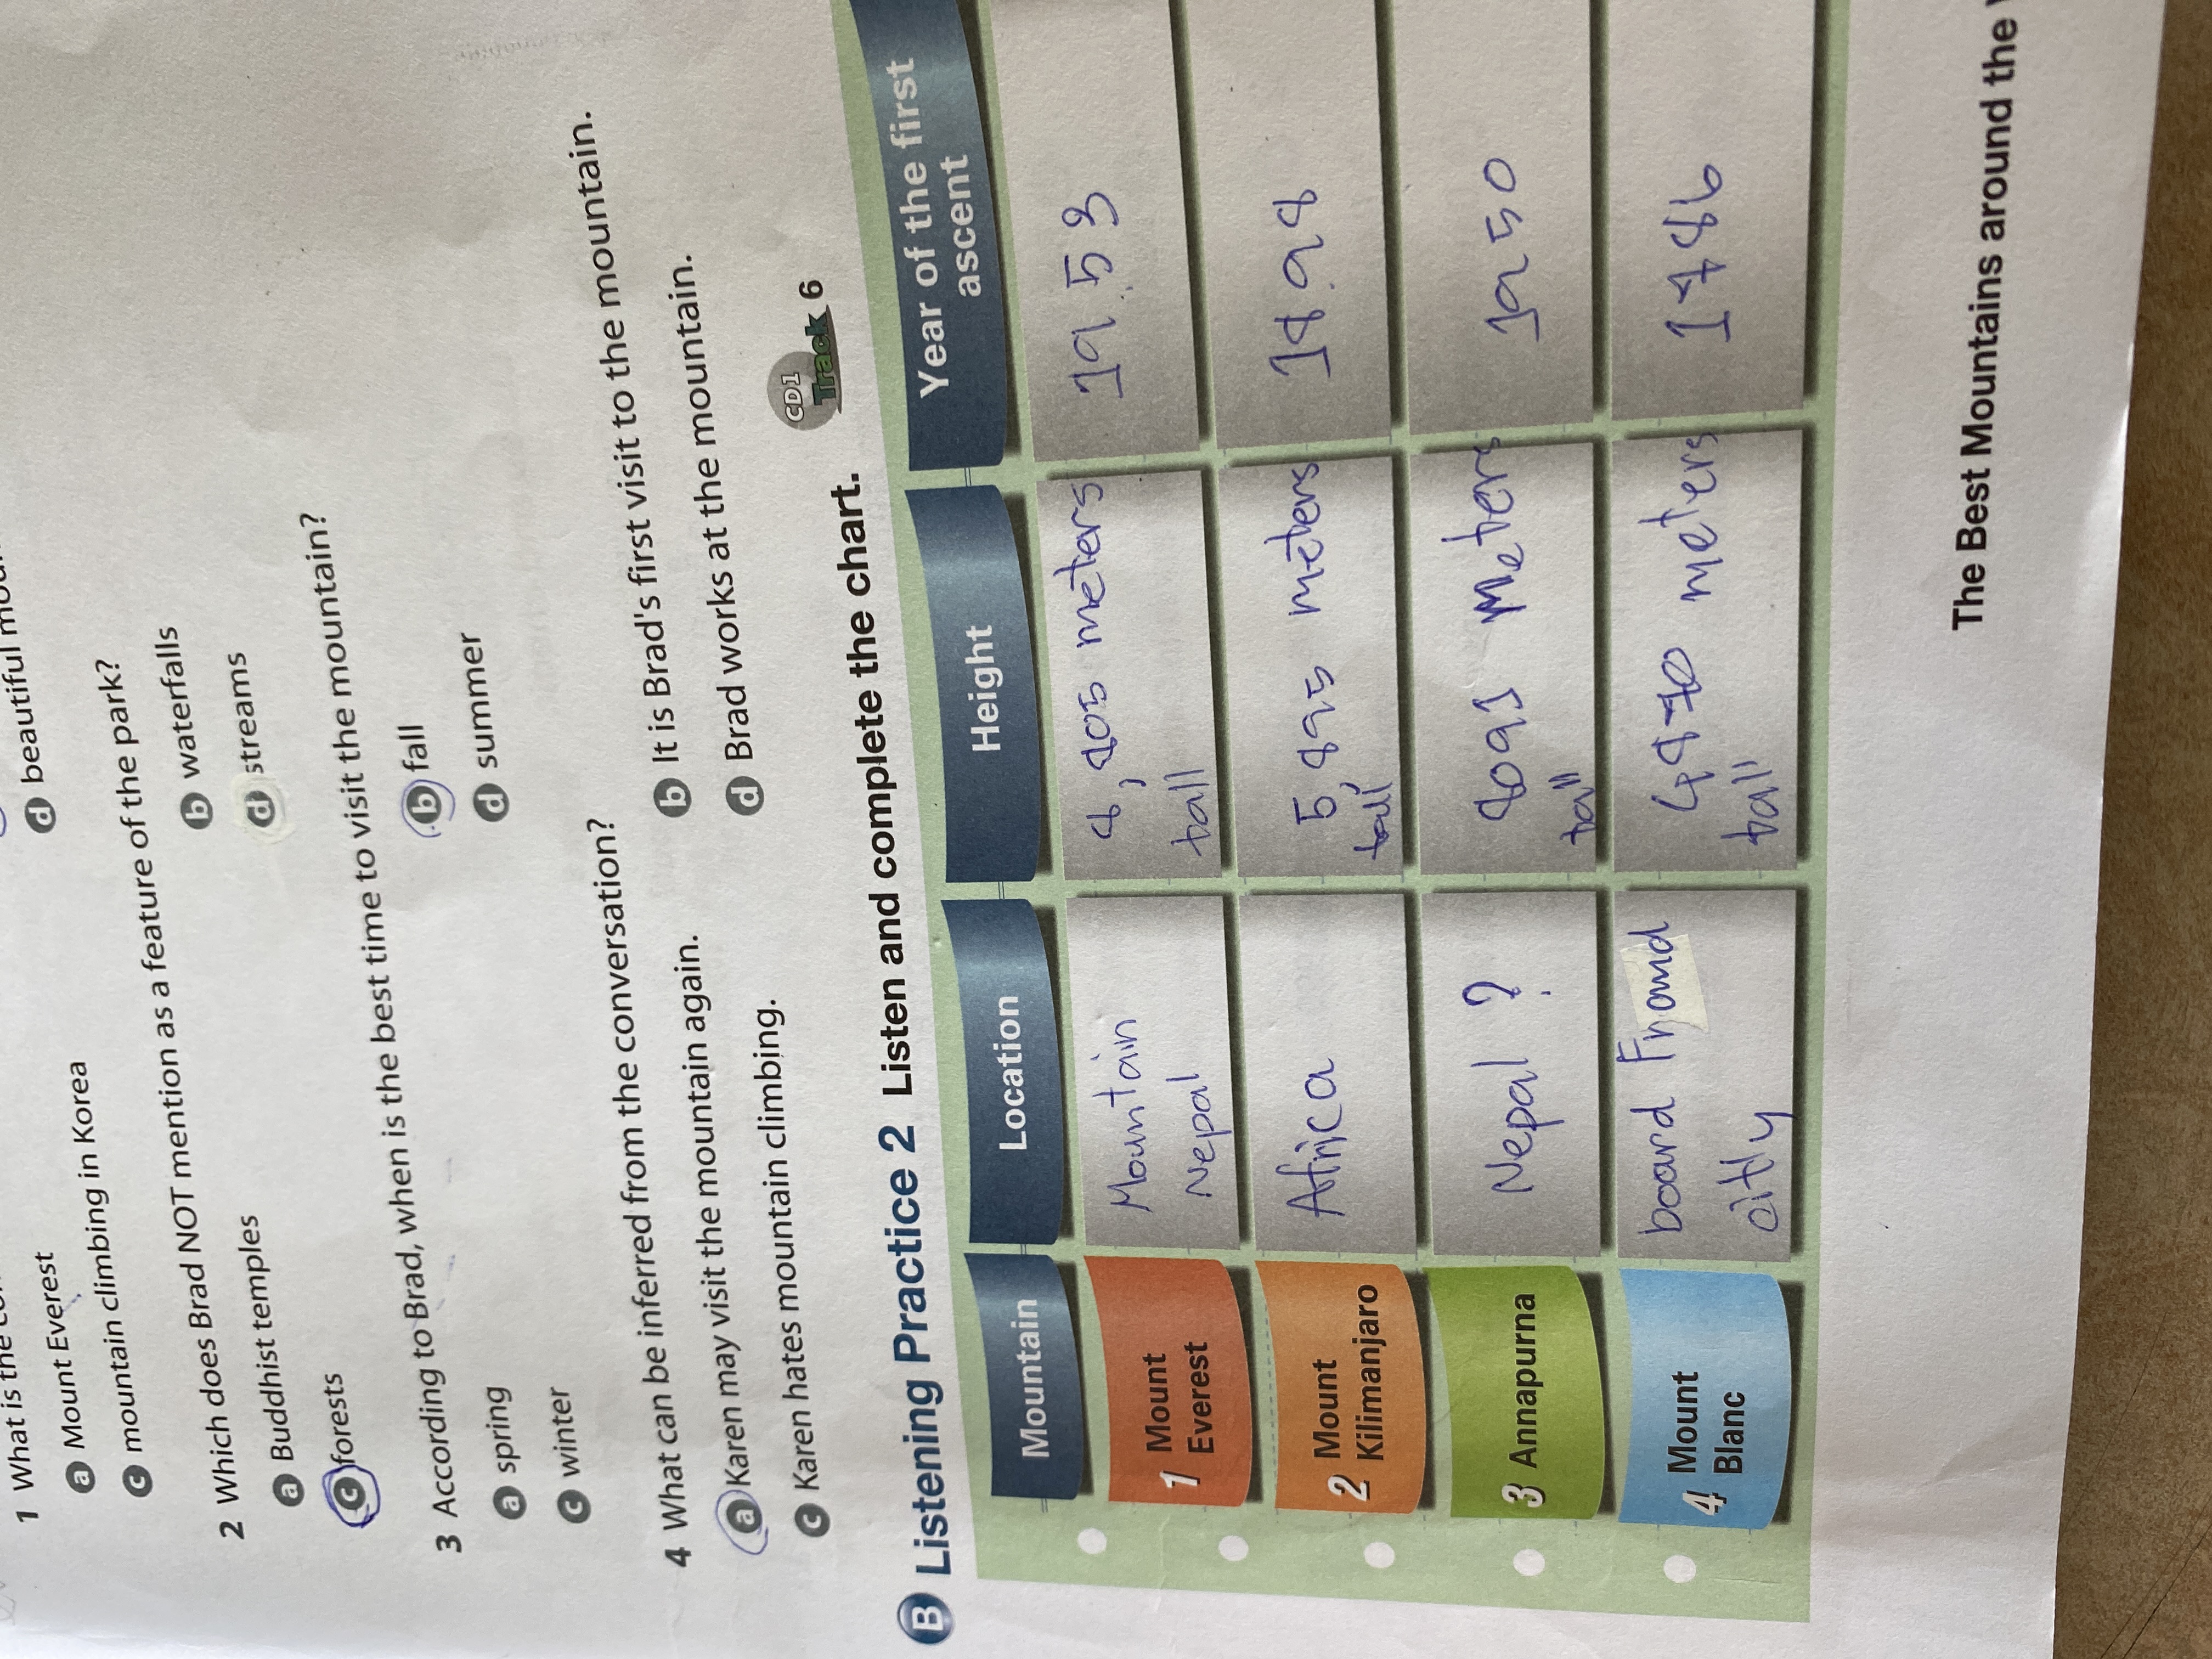 1 What is the
d beautiful
a Mount Everest
c mountain climbing in Korea
2 Which does Brad NOT mention as a feature of the park?
a Buddhist temples
b waterfalls
c forests
d streams
3 According to Brad, when is the best time to visit the mountain?
a spring
b fall
c winter
d summer
4 What can be inferred from the conversation?
a Karen may visit the mountain again.
b It is Brad's first visit to the mountain.
c Karen hates mountain climbing.
d Brad works at the mountain.
B Listening Practice 2 Listen and complete the chart.
CD1
Track 6
Mountain
Location
Height
Year of the first
ascent
1 Mount
Everest
Mountain
Nepal
8,805 meters
tall
1953
2 Mount
Kilimanjaro
Africa
5,895 meters
tall
1898
3 Annapurna
Nepal ?
8091 Meters
tall
1950
4 Mount
Blanc
board
4870 meters
tall
1786
The Best Mountains around the